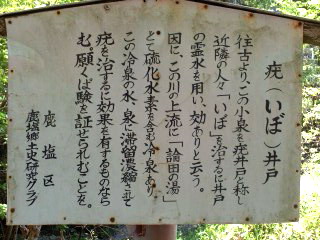 疣(いぼ)井戸
往古より、この小泉を疣井戸と称し
近隣の人々「いぼ」を治するに井戸
の霊水を用い、効ありと云う。
因に、この川の上流に「論田の湯」
とて硫化水素を含む冷泉あり、
この冷泉の水、泉に滞留濃縮されて
疣を治するに効果を有するものなら
む。願くば験を証せられむことを。
鹿塩区
鹿塩郷土史研究グラブ